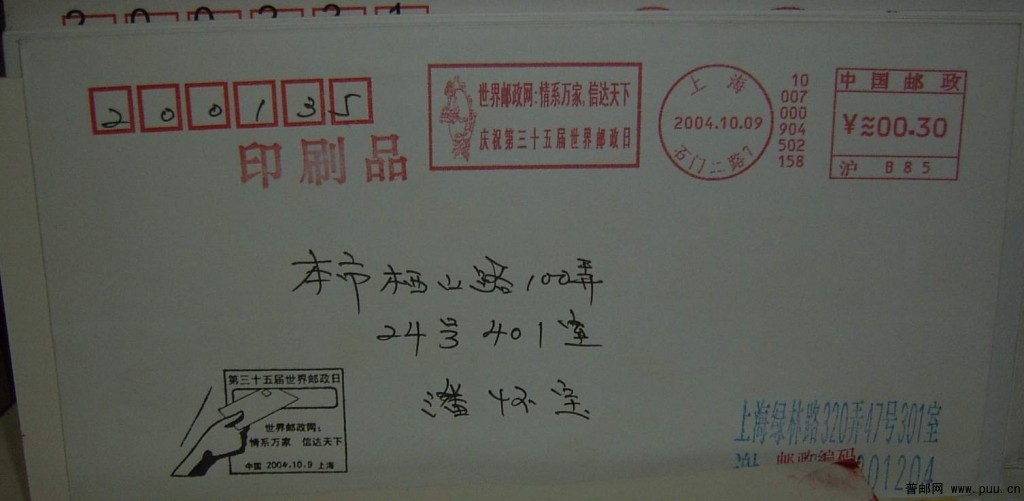 200135
世界邮政网:情系万家,信达天下
庆祝第三十五届世界邮政日
上海
2004.10.09
石门二路7
10
007
000
904
502
158
中国邮政
¥≈00.30
沪 B85
印刷品
本市栖山路100弄
24号401室
潘
第三十五届世界邮政日
世界邮政网:
情系万家 信达天下
中国 2004.10.9 上海
上海绿林路320弄47号301室
邮政编码
201204
普邮网 www.puu.cn